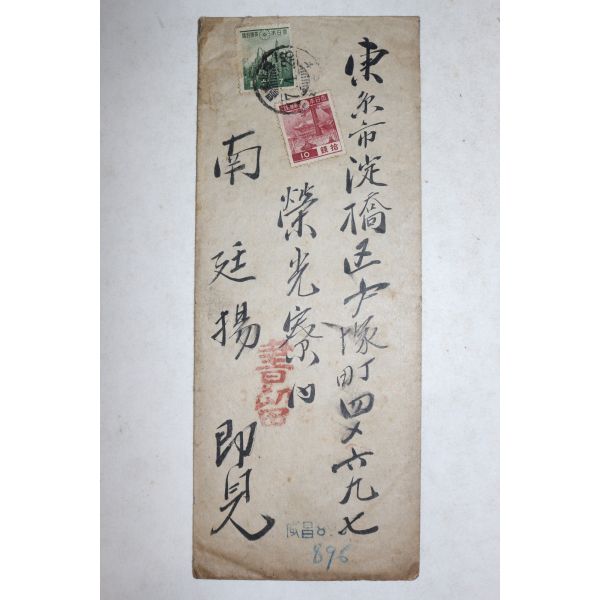 東京市淀橋区戸塚町四ノ六九七
榮光寮内
南廷揚 即見
書留
10 錢拾
896